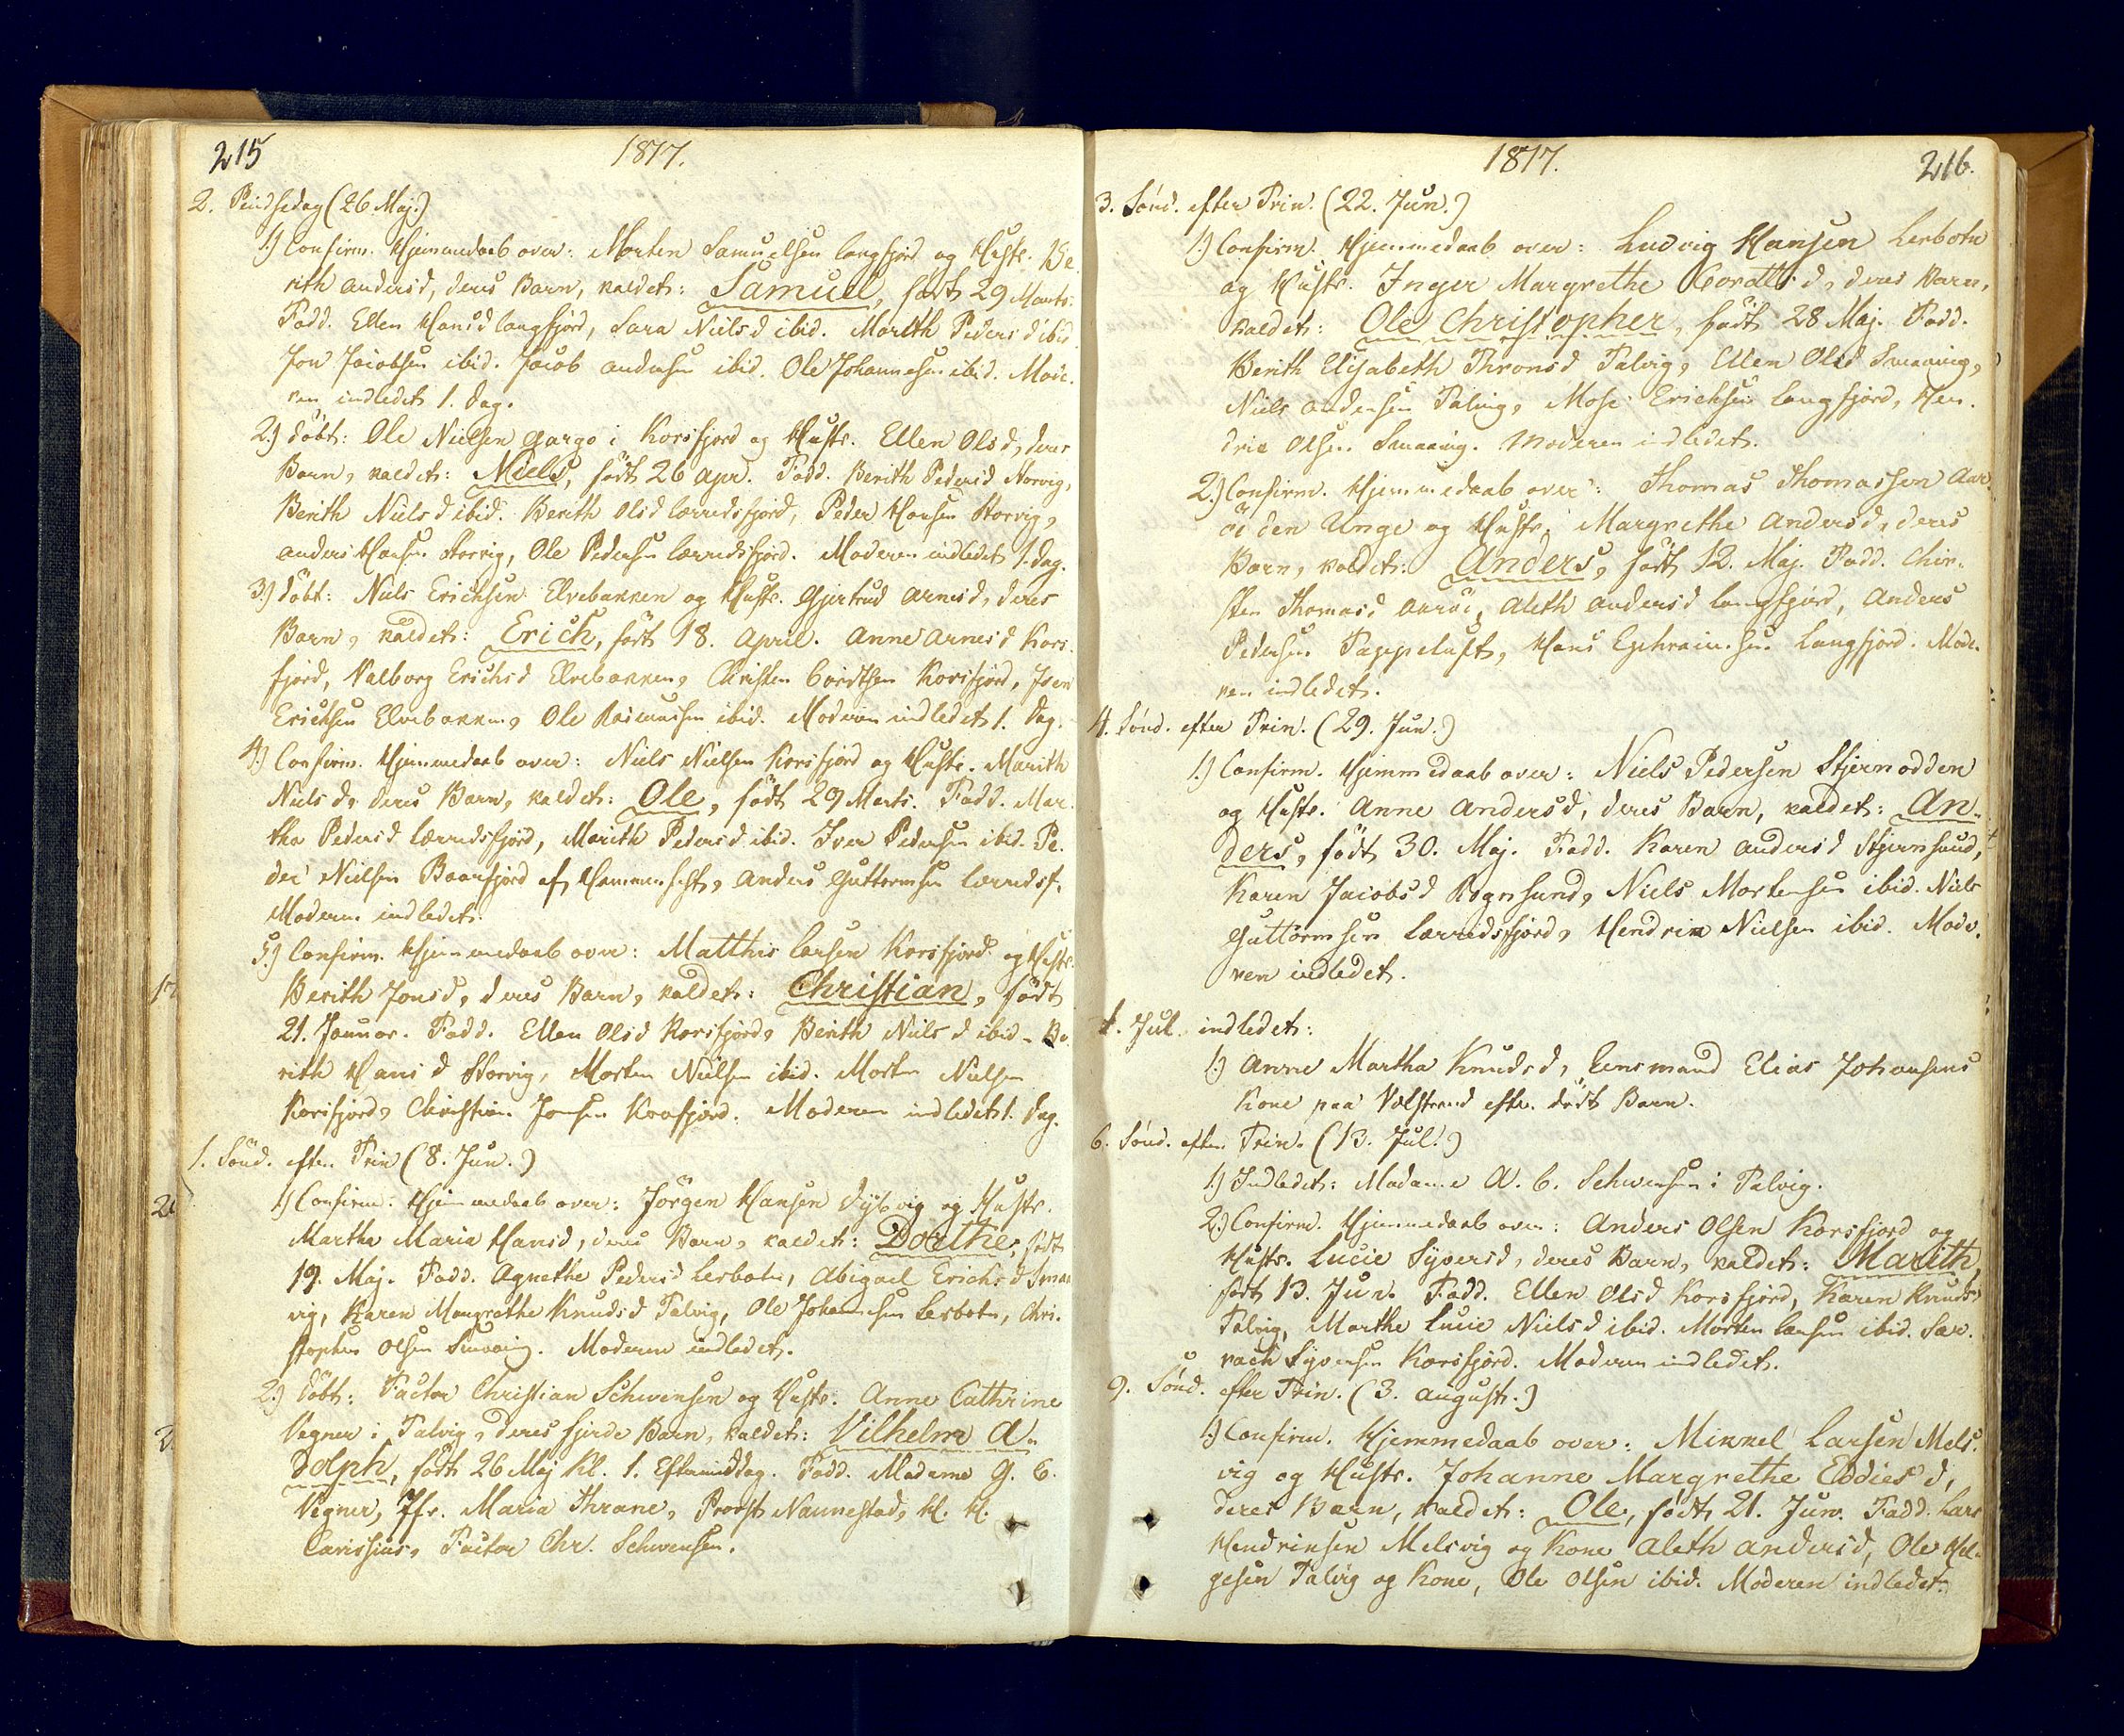 215
1817.
2. Pindsedag (26 Maj.)
1.) Confirm. Hjemmedaab over: Morten Samuelsen Langfjord og Hustr. Be-
rith Andersd, deres Barn, kaldet: Samuel, født 29 Marts.
Fadd. Ellen Hansd Langfjord, Sara Nielsd ibid. Marith Pedersd ibid
Jon Jacobsen ibid. Jacob Andersen ibid. Ole Johannesen ibid. Mode-
ren indledet 1. Dag.
2.) Döbt: Ole Nielsen Gargo i Korsfjord og Hustr. Ellen Olsd, deres
Barn, kaldet: Niels, född 26 Apr. Fadd. Berith Pedersd Storvig,
Berith Nielsd ibid. Berith Olsd Lerredsfjord, Peder Hansen Storvig,
Anders Hansen Storvig, Ole Pedersen Lerredsfjord. Moderen indledet 1. Dag.
3.) Döbt: Niels Erichsen Elvebakken og Hustr. Gjertrud Arnesd, deres
Barn, kaldet: Erich, født 18. April. Anne Arnesd Kors-
fjord, Valborg Erichsd Elvebakken, Christen Cordtsen Korsfjord, Iver
Erichsen Elvebakken, Ole Rasmussen ibid. Moderen indledet 1. Dag.
4.) Confirm. Hjemmedaab over: Niels Nielsen Korsfjord og Hustr. Marith
Nielsd, deres Barn, kaldet: Ole, født 29 Marts. Fadd. Mar-
tha Pedersd Lerredsfjord, Marith Pedersd ibid. Iver Pedersen ibid. Pe-
der Nielsen Baarfjord af Hammerfest, Anders Guttormsen Lerredsf.
Moderen indledet.
5.) Confirm. Hjemmedaab over: Matthis Larsen Korsfjord og Hustr.
Berith Jonsd, deres Barn, kaldet: Christian, födt
21. Januar. Fadd. Ellen Olsd Korsfjord, Berith Nielsd ibid. Be-
rith Hansd Storvig, Morten Nielsen ibid. Morten Nielsen
Korsfjord, Christian Jonsen Korsfjord. Moderen indledet 1. Dag.
1. Sönd. efter Trin (8. Jun.)
1.) Confirm. Hjemmedaab over: Jörgen Hansen Dybvig og Hustr.
Martha Maria Hansd, deres Barn, kaldet: Dorthe, födt
19. Maj. Fadd. Agnethe Pedersd Lerbotn, Abigael Erichsd Smaa-
vig, Karen Margrethe Knudsd Talvig, Ole Johannesen Lerbotn, Chri-
stopher Olsen Smaavig. Moderen indledet.
2.) Döbt: Factor Christian Schwensen og Hustr. Anne Cathrine
Vegner i Talvig, deres fjerde Barn, kaldet: Vilhelm A-
dolph, født 26 Maj Kl. 1. Eftermiddag. Fadd. Madame G. C.
Vegner, Jfr. Maria Thrane, Provst Nannestad, H. H.
Carissius, Factor Chr. Schwensen.
1817.
216.
3. Sönd. efter Trin. (22. Jun.)
1.) Confirm. Hjemmedaab over: Ludvig Hansen Lerbotn
og Hustr. Inger Margrethe Cordtsd, deres Barn,
kaldet: Ole Christopher, født 28 Maj. Fadd.
Berith Elisabeth Thronsd Talvig, Ellen Olsd Smaavig,
Niels Andersen Talvig, Mose Erichsen Langfjord, Hen-
dric Olsen Smaavig. Moderen indledet.
2.) Confirm. Hjemmedaab over: Thomas Thomassen Aar-
öe den Unge og Hustr. Margrethe Andersd, deres
Barn, kaldet: Anders, født 12. Maj. Fadd. Chir-
sten Thomasd Aaröe, Aleth Andersd Langfjord, Anders
Pedersen Pappeluft, Hans Ephraimsen Langfjord. Mode-
ren indledet.
4. Sönd. efter Trin. (29. Jun.)
1.) Confirm. Hjemmedaab over: Niels Pedersen Stjernodden
og Hustr. Anne Andersd, deres Barn, kaldet: An-
ders, født 30. Maj. Fadd. Karen Andersd Stjernsund,
Karen Jacobsd Rognsund, Niels Mortensen ibid. Niels
Guttormsen Lerredsfjord, Hendrik Nielsen ibid. Mode-
ren indledet.
1. Jul. indledet:
1.) Anne Martha Knudsd, Lensmand Elias Johansens
Kone paa Volstrand efter dödt Barn.
6. Sönd. efter Trin. (13. Jul.)
1.) Indledet: Madame A. C. Schwensen i Talvig.
2.) Confirm. Hjemmedaab over: Anders Olsen Korsfjord og
Hustr. Lucie Syversd, deres Barn, kaldet: Marith,
født 13. Jun. Fadd. Ellen Olsd Korsfjord, Karen Knudsd
Talvig, Marthe Lucie Nielsd ibid. Morten Larsen ibid. Sar-
Syversen Korsfjord. Moderen indledet.
9. Sönd. efter Trin. (3. August.)
1.) Confirm. Hjemmedaab over: Mikkel Larsen Mels-
vig og Hustr. Johanne Margrethe Eddiesd,
deres Barn, kaldet: Ole, født 21. Jun. Fadd. Lars
Hendriksen Melsvig og Kone Aleth Andersd, Ole Hel-
gesen Talvig og Kone, Ole Olsen ibid. Moderen indledet.